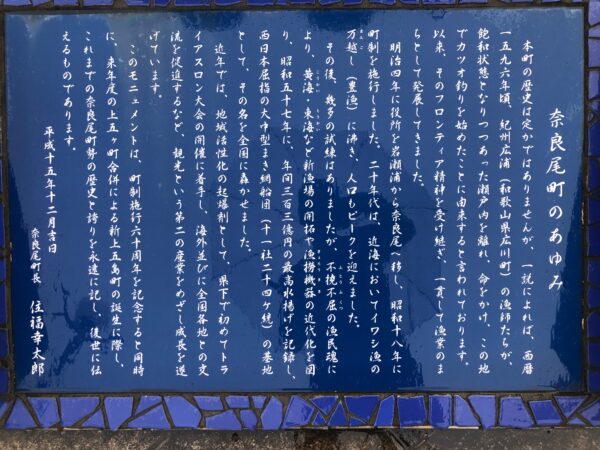 奈良尾町のあゆみ
本町の歴史は定かではありませんが、一説によれば、西暦
一五九六年頃、紀州広浦（和歌山県広川町）の漁師たちが、
飽和状態となりつつあった瀬戸内を離れ、命をかけ、この地
でカツオ釣りを始めたことに由来すると言われております。
以来、そのフロンティア精神を受け継ぎ、一貫して漁業のま
ちとして発展してきました。
明治四年に役所を岩瀬浦から奈良尾へ移し、昭和十八年に
町制を施行しました。二十年代は、近海においてイワシ漁の
万越し（豊漁）に沸き、人口もピークを迎えました。
その後、幾多の試練はありましたが、不撓不屈の漁民魂に
より、黄海・東海など新漁場の開拓や漁撈機器の近代化を図
り、昭和五十七年に、年間三百三億円の最高水揚げを記録し、
西日本屈指の大中型まき網船団（十一社二十四ヶ統）の基地
として、その名を全国に轟かせました。
近年では、地域活性化の起爆剤として、県下で初めてトラ
イアスロン大会の開催に着手し、海外並びに全国各地との交
流を促進するなど、観光という第二の産業をめざし成長を遂
げています。
このモニュメントは、町制施行六十周年を記念すると同時
に、来年度の上五ヶ町合併による新上五島町の誕生に際し、
これまでの奈良尾町勢の歴史と誇りを永遠に記し、後世に伝
えるものであります。
平成十五年十二月吉日
奈良尾町長　住福幸太郎